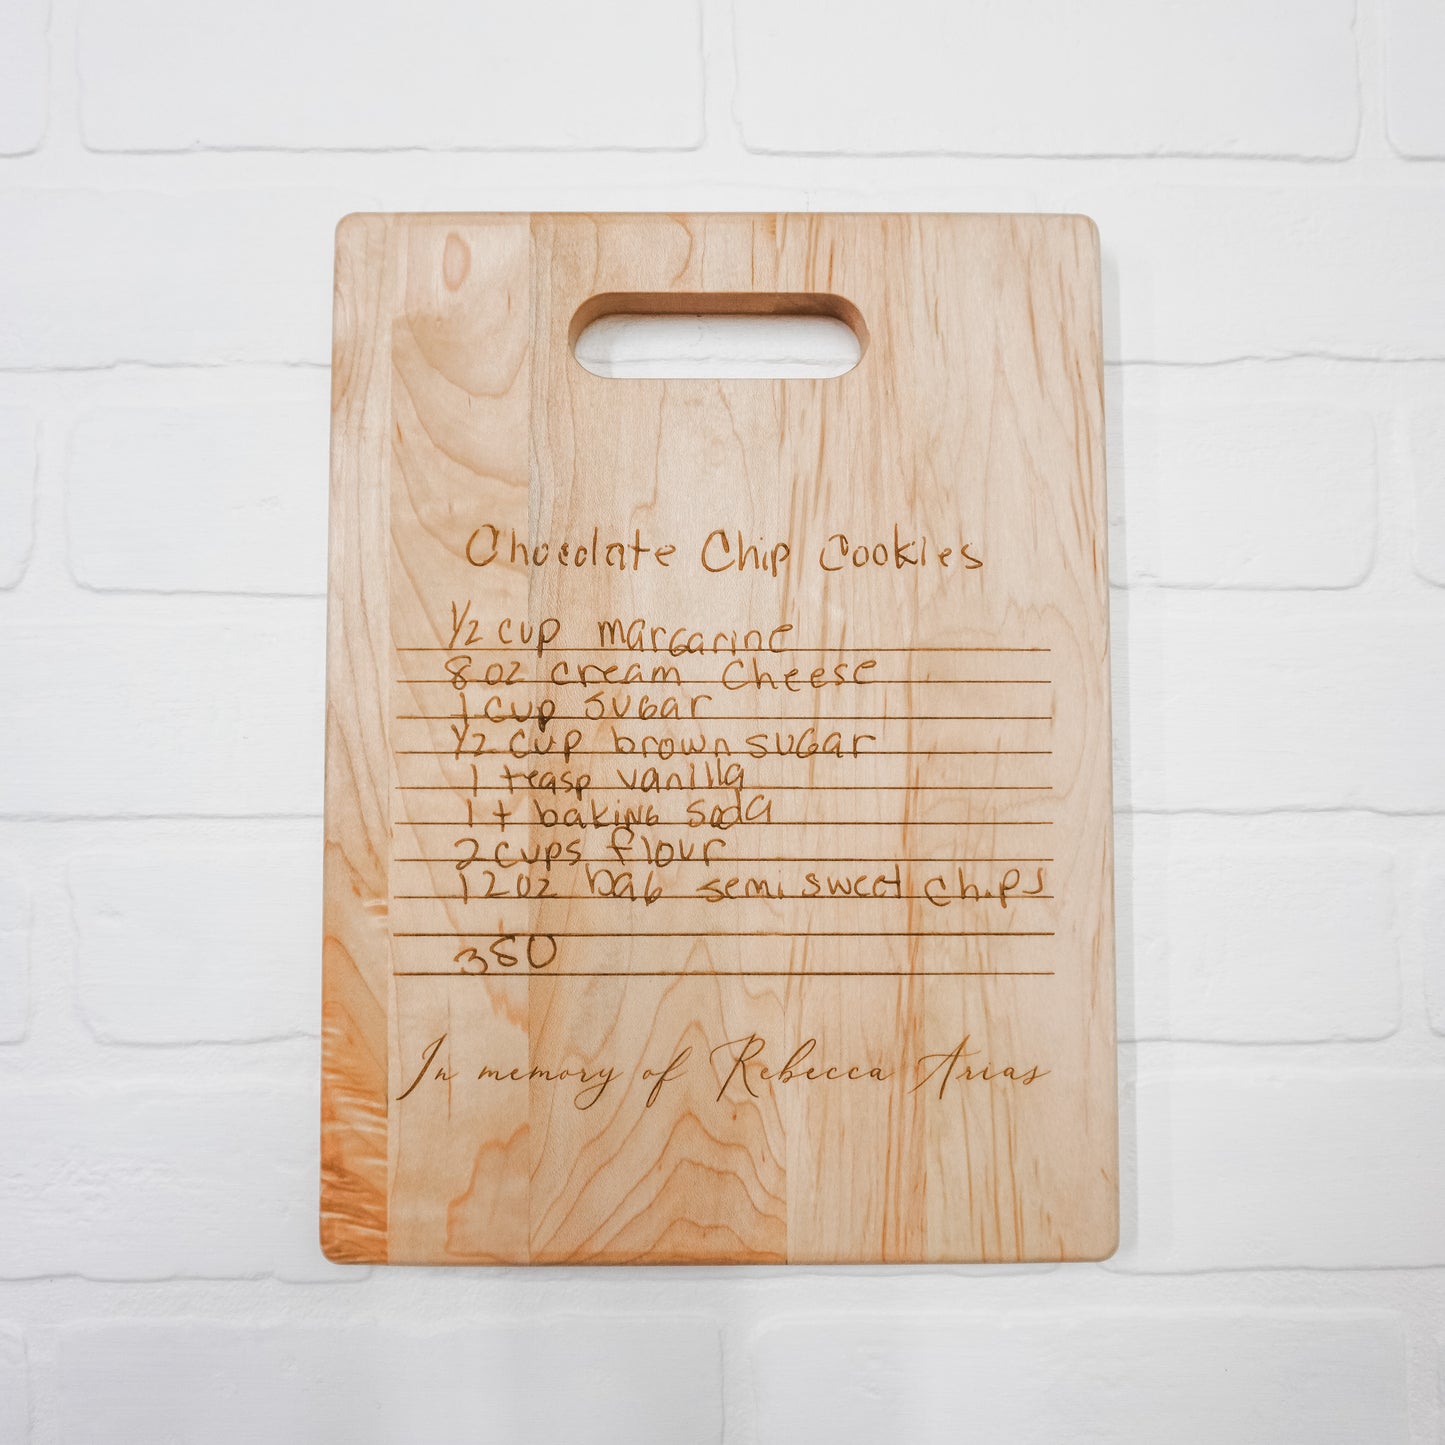 Chocolate Chip Cookies
1/2 cup margarine
8 oz cream cheese
1 cup sugar
1/2 cup brown sugar
1 teasp vanilla
1 t baking soda
2 cups flour
12 oz bag semi sweet chips
350
In memory of Rebecca Arias